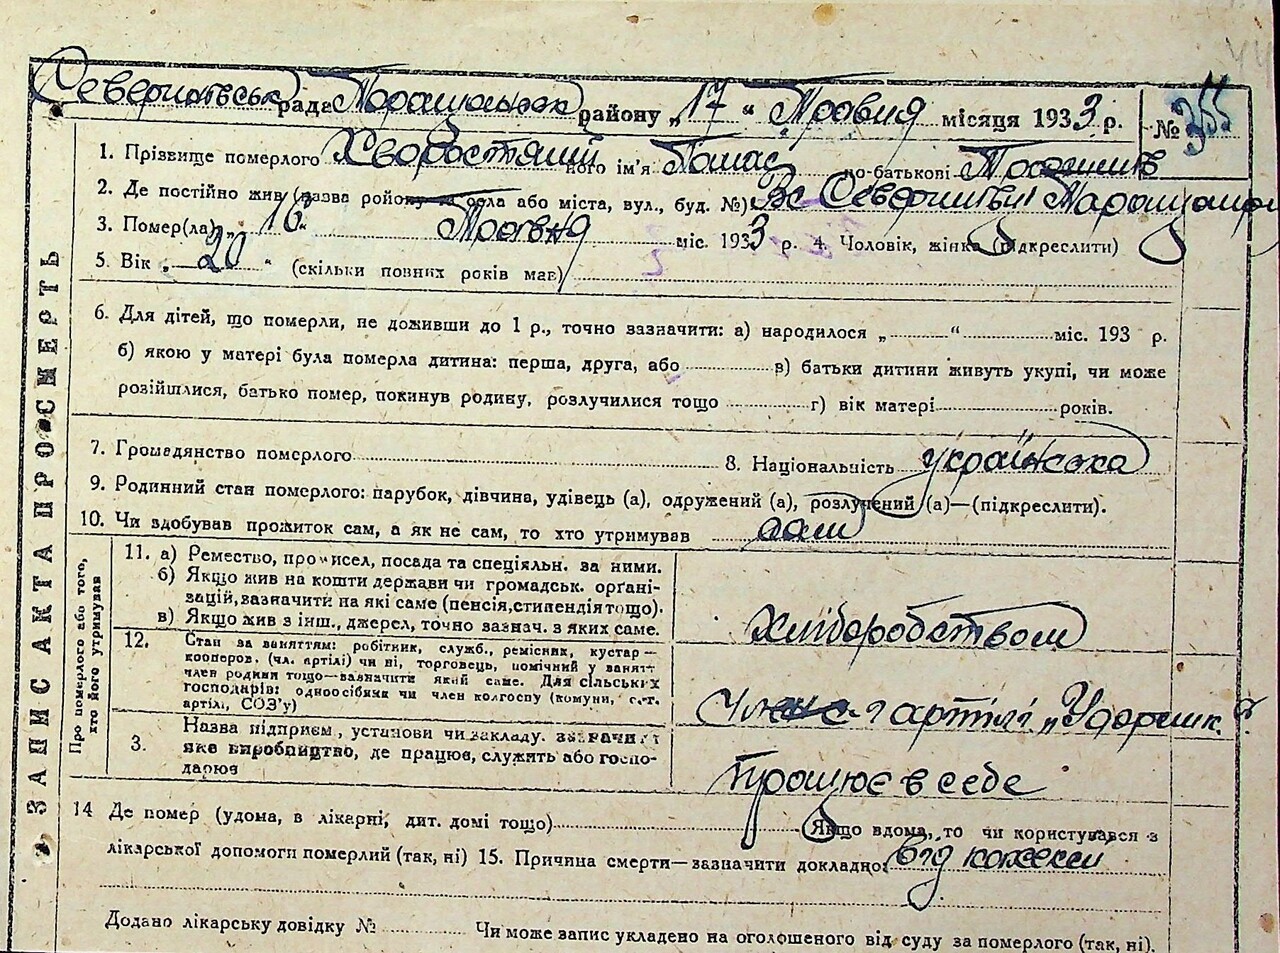 рада района „17“ Травня місяця 1933 р. № 355
1. Прізвище померлого Хворостяний його ім'я Панас по-батькові
2. Де постійно жив (назва ройону та села або міста, вул., буд. №)
3. Помер(ла) „16“ Травня міс. 1933 р. 4. Чоловік, жінка (підкреслити)
5. Вік „20“ (скільки повних років мав)
6. Для дітей, що померли, не доживши до 1 р., точно зазначити: а) народилося „ “ міс. 193 р.
б) якою у матері була померла дитина: перша, друга, або в) батьки дитини живуть укупі, чи може
розійшлися, батько помер, покинув родину, розлучилися тощо г) вік матері років.
7. Громадянство померлого 8. Національність українська
9. Родинний стан померлого: парубок, дівчина, удівець (а), одружений (а), розлучений (а)—(підкреслити).
10. Чи здобував прожиток сам, а як не сам, то хто утримував сам
ЗАПИС АКТА ПРО СМЕРТЬ
Про померлого або того, хто його утримував
11. а) Ремество, промисел, посада та спеціяльн. за ними.
б) Якщо жив на кошти держави чи громадськ. органі-
зацій, зазначити на які саме (пенсія, стипендія тощо).
в) Якщо жив з інш., джерел, точно зазнач. з яких саме.
Хліборобством
12. Стан за заняттям: робітник, служб., ремісник, кустар—
кооперов. (чл. артілі) чи ні, торговець, помічний у занятт.
член родини тощо—зазначити який саме. Для сільських
господарів: одноосібник чи член колгоспу (комуни, с.-г.
артілі, СОЗ'у)
артілі „Ударник“
3. Назва підприєм., установи чи закладу. зазначити
яке виробництво, де працює, служить або госпо-
дарює
працює в себе
14 Де помер (удома, в лікарні, дит. домі тощо) Якщо вдома, то чи користувався з
лікарської допомоги померлий (так, ні) 15. Причина смерти—зазначити докладно: від
Додано лікарську довідку № Чи може запис укладено на оголошеного від суду за померлого (так, ні).